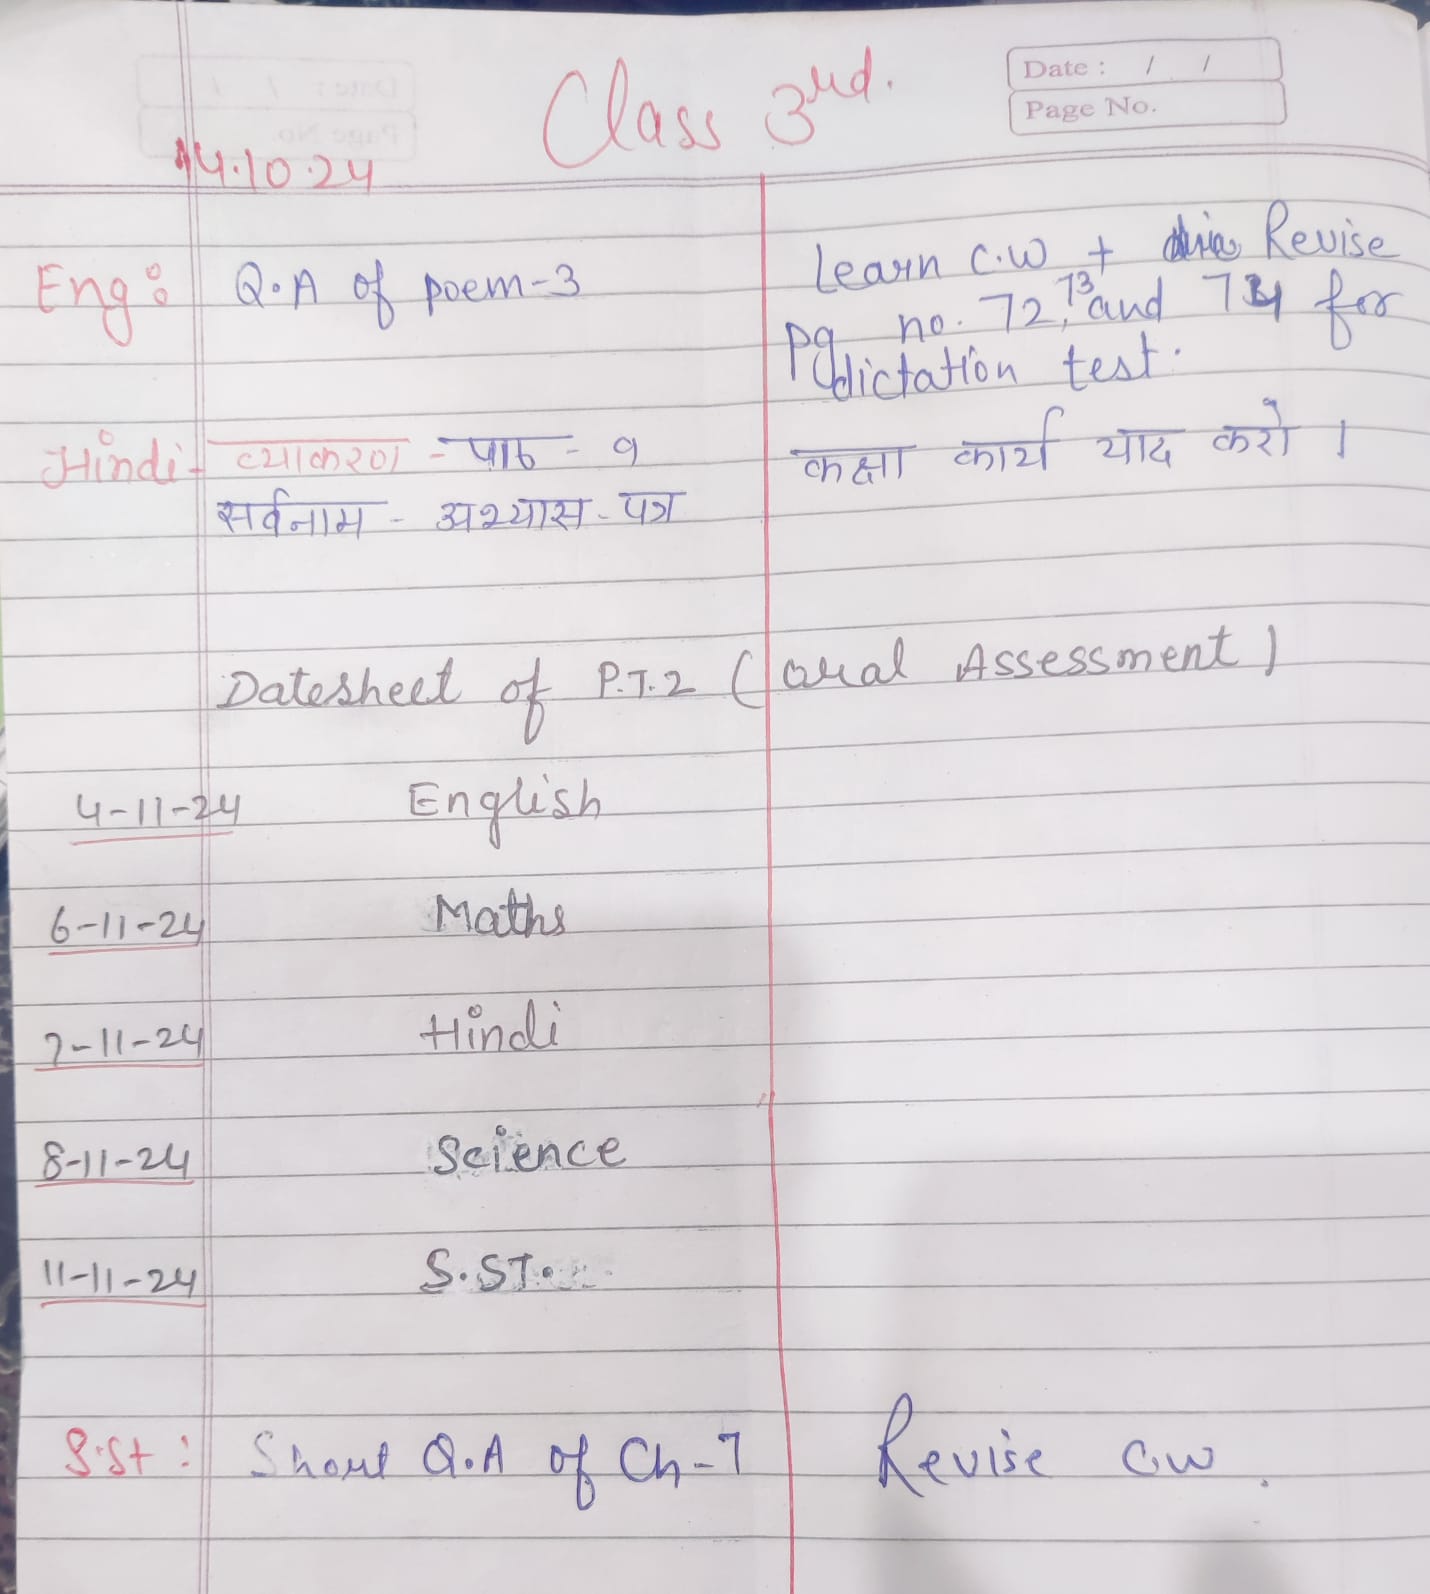 Class 3rd.
Date : / /
Page No.
14.10.24
Eng: Q.A of poem-3
Learn C.W + Revise
pg no. 72, 73 and 74 for
dictation test.
Hindi- व्याकरण - पाठ - ९
सर्वनाम - अभ्यास - पत्र
कक्षा कार्य याद करो ।
Datesheet of P.T.2 (oral Assessment)
4-11-24 English
6-11-24 Maths
7-11-24 Hindi
8-11-24 Science
11-11-24 S.ST.
S.St : Short Q.A of Ch-7 Revise CW.